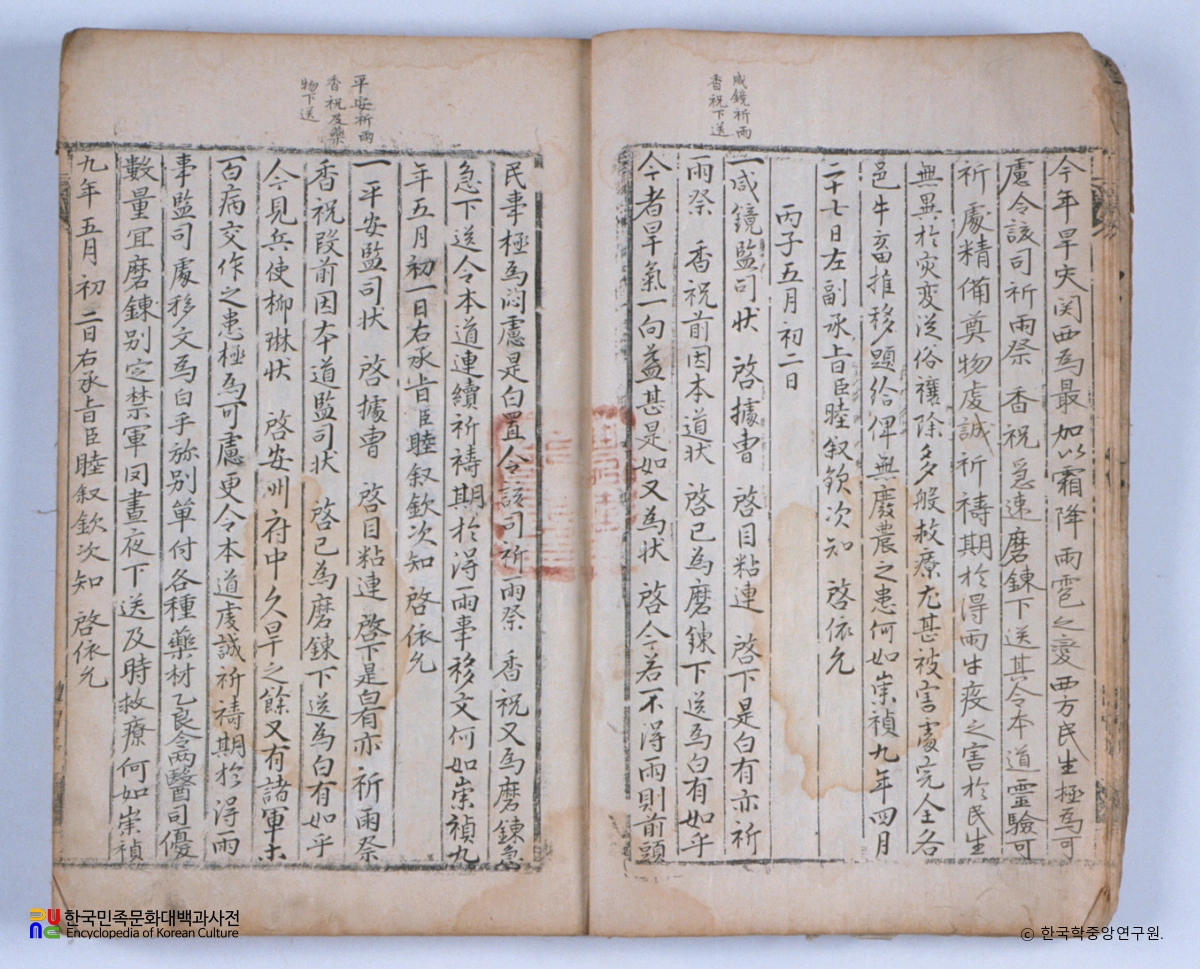 咸鏡祈雨
香祝下送
今年旱災関西為最加以霜降雨雹之変西方民生極為可
慮令該司祈雨祭 香祝急速磨鍊下送其令本道靈驗可
祈處精備奠物虔誠祈禱期於得雨牛疫之害於民生
無異於灾変從俗禳除多般救療尤甚被害處完全各
邑牛畜推移題給俾無廢農之患何如崇禎九年四月
二十七日左副承旨臣睦叙欽次知 啓依允
丙子五月初二日
一咸鏡監司狀 啓據曹 啓目粘連 啓下是白有亦祈
雨祭 香祝前因本道狀 啓已為磨鍊下送為白有如乎
今者旱氣一向益甚是如又為狀 啓今若不得雨則前頭
平安祈雨
香祝及藥
物下送
民事極為悶慮是白置令該司祈雨祭 香祝又為磨鍊急
急下送令本道連續祈禱期於得雨事移文何如崇禎九
年五月初一日右承旨臣睦叙欽次知 啓依允
一平安監司狀 啓據曹 啓目粘連 啓下是白有亦祈雨祭
香祝段前因本道監司狀 啓已為磨鍊下送為白有如乎
今見兵使柳琳狀 啓安州府中久旱之餘又有諸軍未
百病交作之患極為可慮更令本道虔誠祈禱期於得雨
事監司處移文為白乎旀別單付各種藥材乙良令兩醫司優
數量宜磨鍊別定禁軍罔晝夜下送及時救療何如崇禎
九年五月初二日右承旨臣睦叙欽次知 啓依允
한국민족문화대백과사전
Encyclopedia of Korean Culture
ⓒ 한국학중앙연구원.